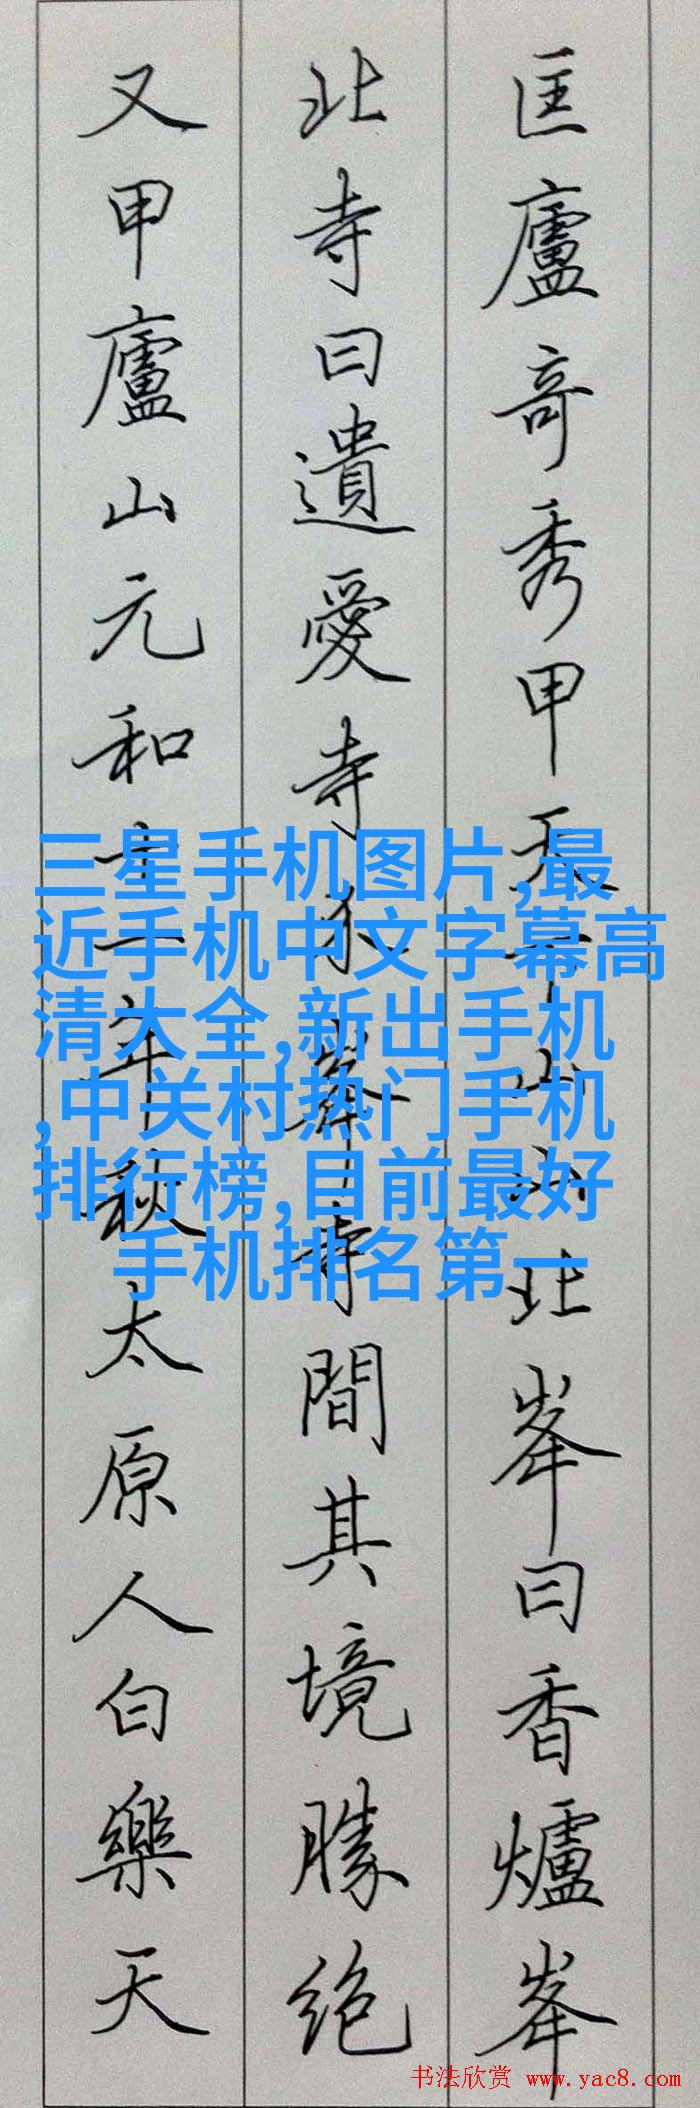 匡廬奇秀甲天下山山北峯曰香爐峯
北寺曰遺愛寺介峯寺間其境勝絶
又甲廬山元和十一年秋太原人白樂天
三星手机图片,最
近手机中文字幕高
清大全,新出手机
,中关村热门手机
排行榜,目前最好
手机排名第一
书法欣赏 www.yac8.com